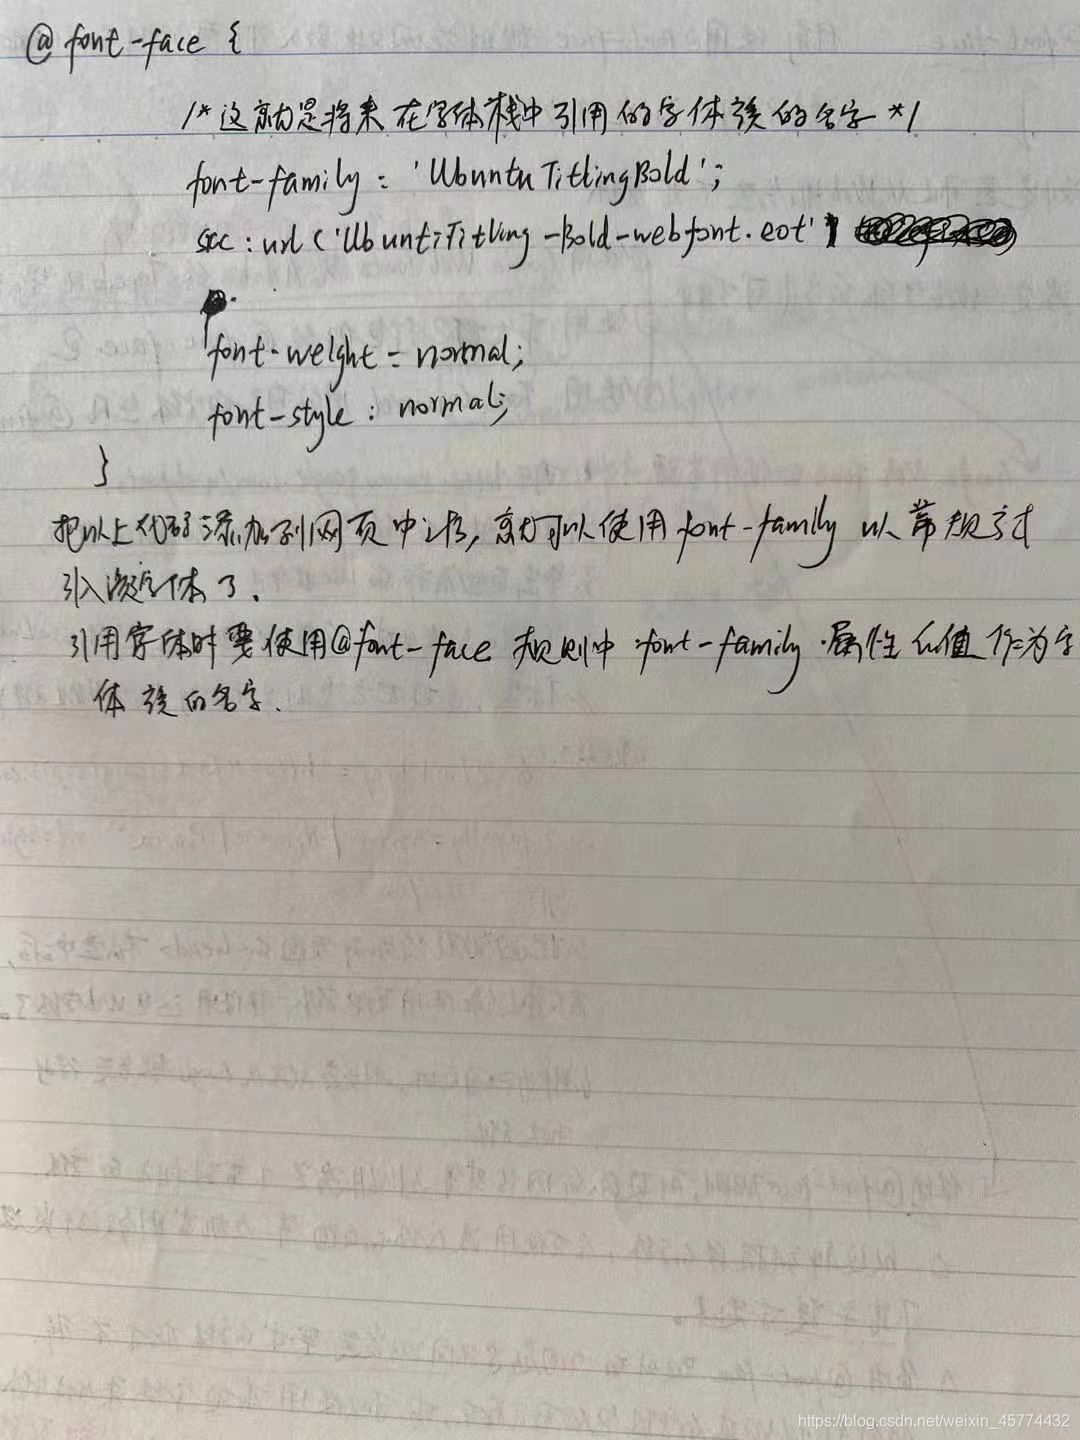 @font-face {
/*这就是将来在字体栈中引用的字体族的名字*/
font-family: 'UbuntuTitlingBold';
src: url('UbuntiTitling-Bold-webfont.eot')
font-weight = normal;
font-style: normal;
}
把以上代码添加到网页中后,就可以使用font-family以常规方式
引入该字体了.
引用字体时要使用@font-face规则中font-family属性的值作为字
体族的名字.
https://blog.csdn.net/weixin_45774432